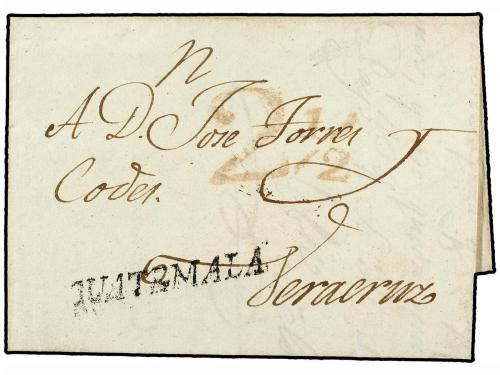 n
2 1/2
A D. Jose Torres
Codes.
GUATEMALA
Veracruz